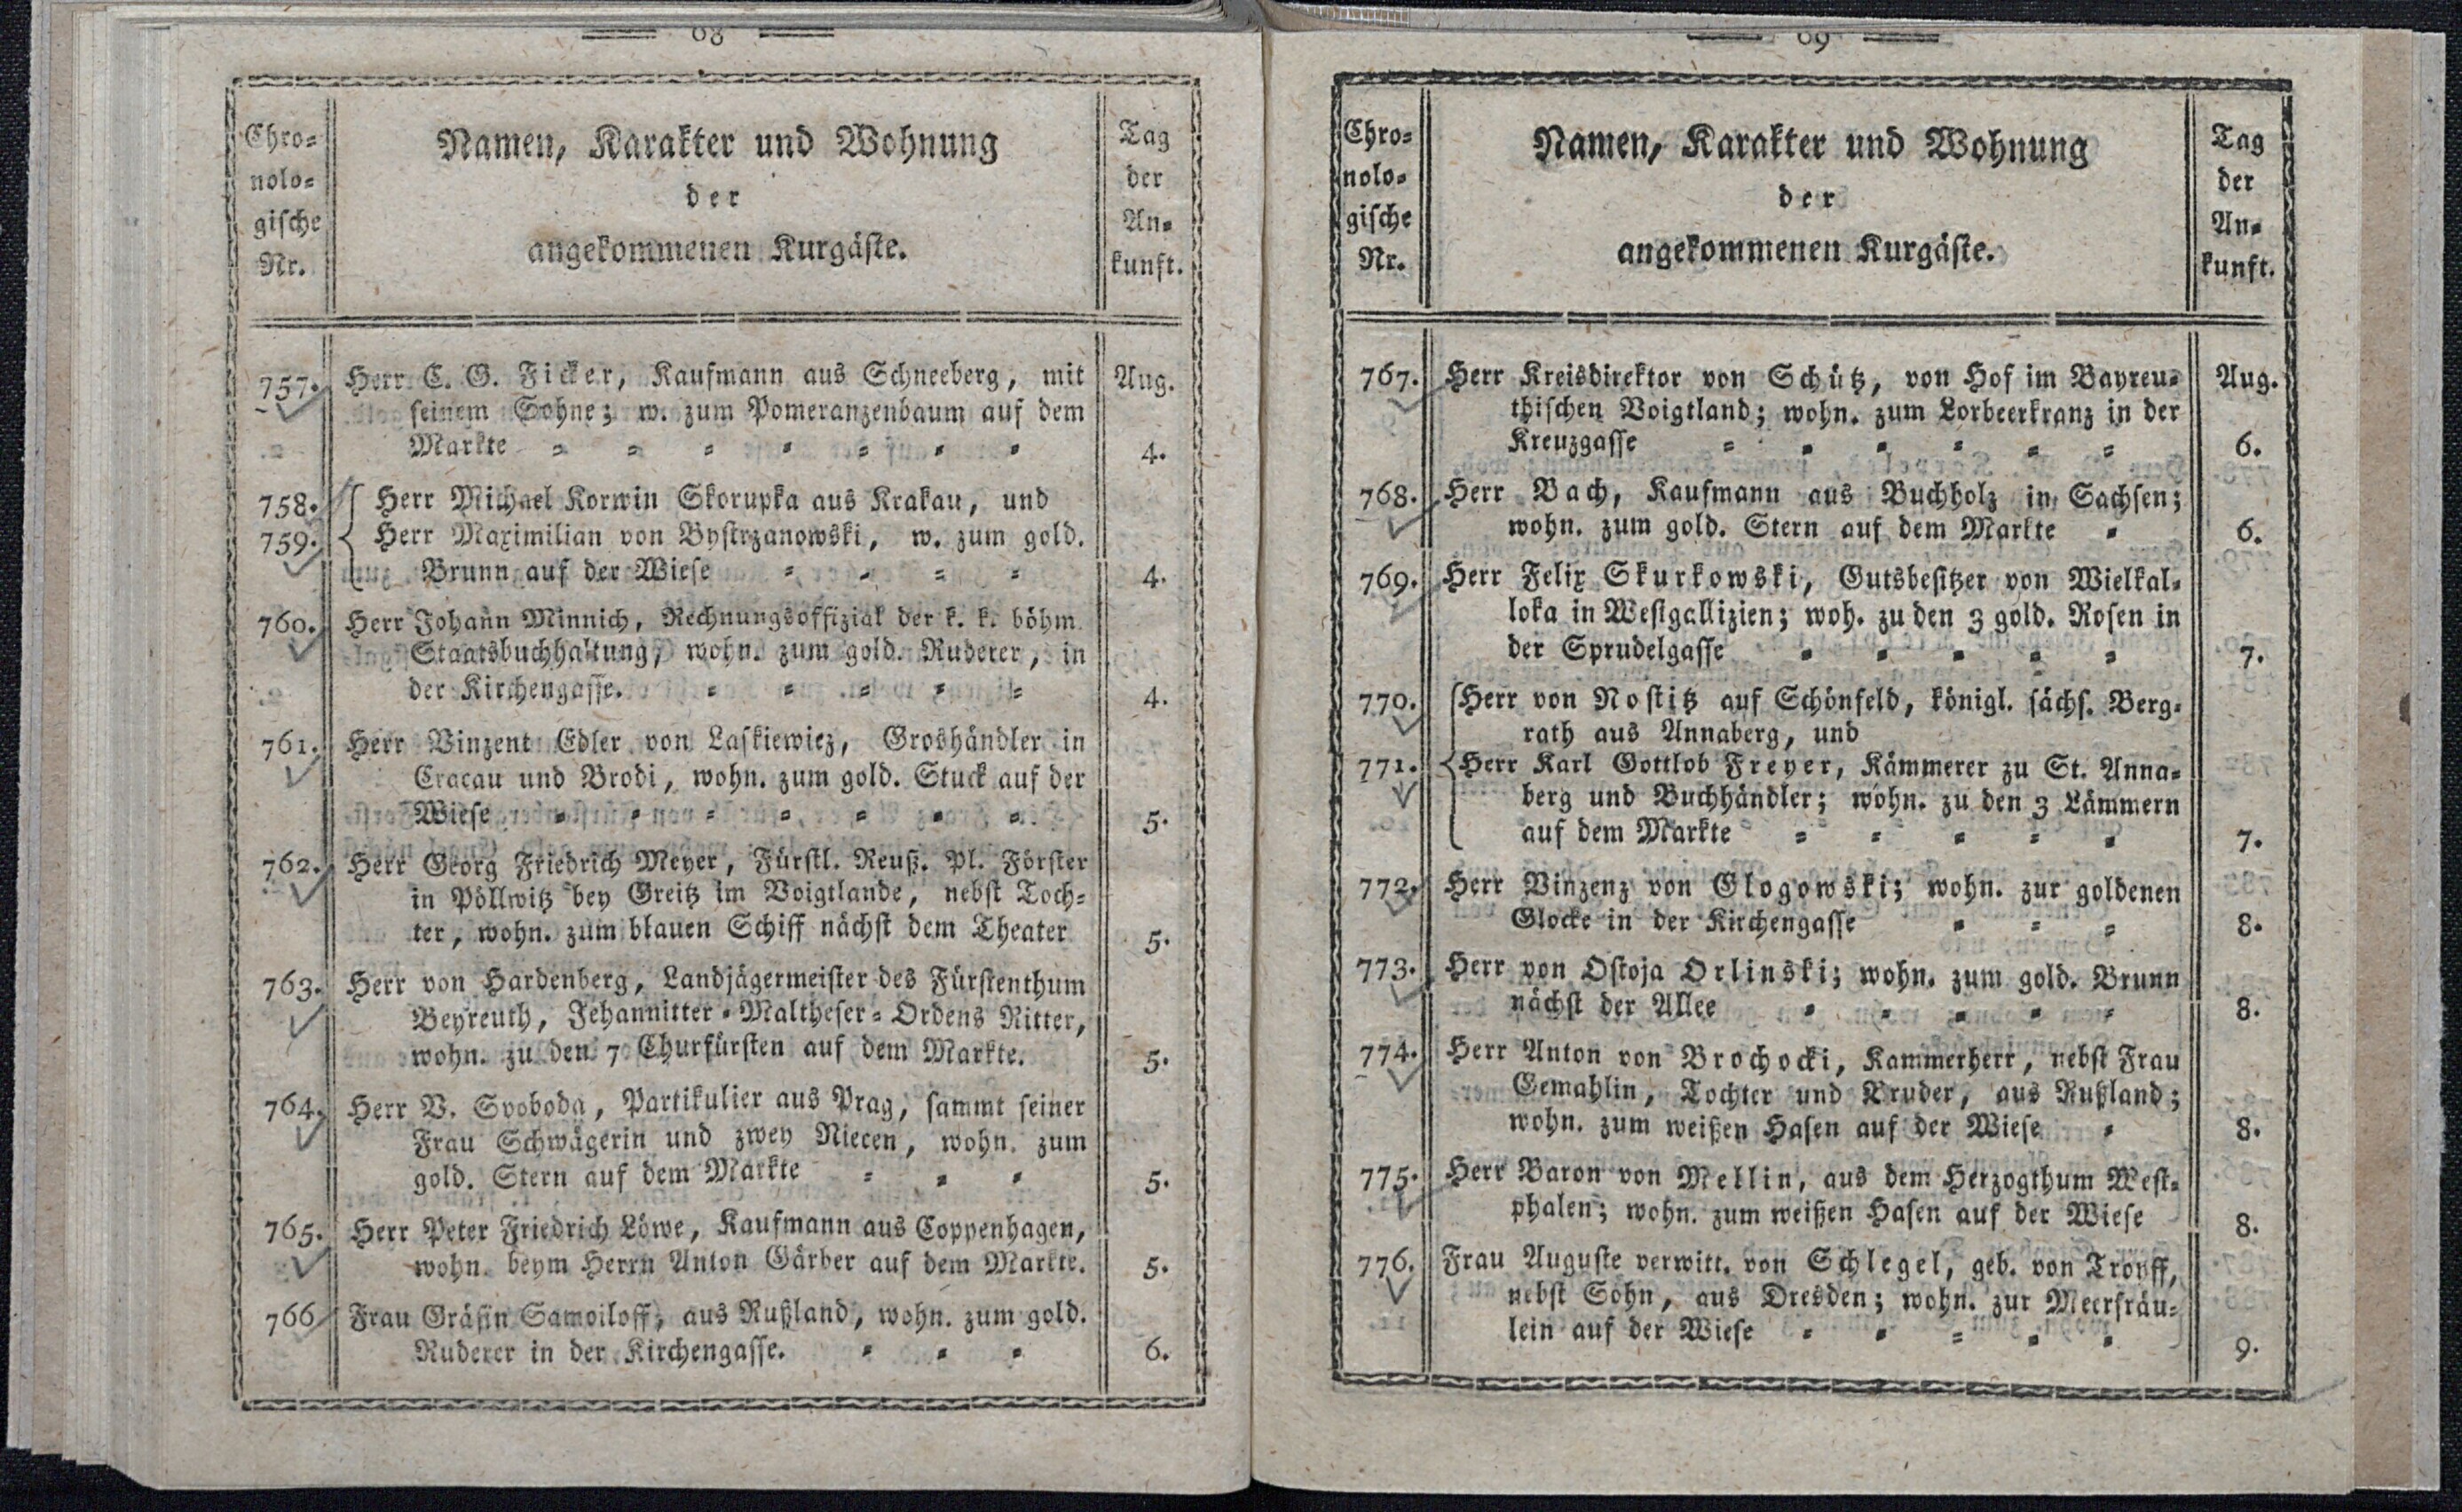 68
Chro=
nolo=
gische
Nr.
Namen, Karakter und Wohnung
der
angekommenen Kurgäste.
Tag
der
An=
kunft.
757. Herr C. G. Ficker, Kaufmann aus Schneeberg, mit Aug.
seinem Sohne; w. zum Pomeranzenbaum auf dem
Markte = = = = = = = 4.
758. Herr Michael Korwin Skorupka aus Krakau, und
759. Herr Maximilian von Bystrzanowski, w. zum gold.
Brunn auf der Wiese = = = = 4.
760. Herr Johann Minnich, Rechnungsoffizial der k. k. böhm.
Staatsbuchhaltung, wohn. zum gold. Ruderer, in
der Kirchengasse. = = = = = 4.
761. Herr Vinzent Edler von Laskiewicz, Groshändler in
Cracau und Brodi, wohn. zum gold. Stuck auf der
Wiese = = = = = = = 5.
762. Herr Georg Friedrich Meyer, Fürstl. Reuß. Pl. Förster
in Pöllwitz bey Greitz im Voigtlande, nebst Toch=
ter, wohn. zum blauen Schiff nächst dem Theater 5.
763. Herr von Hardenberg, Landjägermeister des Fürstenthum
Beyreuth, Jehannitter=Maltheser=Ordens Ritter,
wohn. zu den 7 Churfürsten auf dem Markte. 5.
764. Herr V. Svoboda, Partikulier aus Prag, sammt seiner
Frau Schwägerin und zwey Niecen, wohn. zum
gold. Stern auf dem Markte = = = 5.
765. Herr Peter Friedrich Löwe, Kaufmann aus Coppenhagen,
wohn. beym Herrn Anton Gärber auf dem Markte. 5.
766 Frau Gräfin Samoiloff, aus Rußland, wohn. zum gold.
Ruderer in der Kirchengasse. = = = 6.
69
Chro=
nolo=
gische
Nr.
Namen, Karakter und Wohnung
der
angekommenen Kurgäste.
Tag
der
An=
kunft.
767. Herr Kreisdirektor von Schütz, von Hof im Bayreu= Aug.
thischen Voigtland; wohn. zum Lorbeerkranz in der
Kreuzgasse = = = = = = 6.
768. Herr Bach, Kaufmann aus Buchholz in Sachsen;
wohn. zum gold. Stern auf dem Markte = 6.
769. Herr Felix Skurkowski, Gutsbesitzer von Wielkal=
loka in Westgallizien; woh. zu den 3 gold. Rosen in
der Sprudelgasse = = = = = 7.
770. Herr von Nostitz auf Schönfeld, königl. sächs. Berg=
rath aus Annaberg, und
771. Herr Karl Gottlob Freyer, Kämmerer zu St. Anna=
berg und Buchhändler; wohn. zu den 3 Lämmern
auf dem Markte = = = = = 7.
772. Herr Vinzenz von Glogowski; wohn. zur goldenen
Glocke in der Kirchengasse = = = 8.
773. Herr von Ostoja Orlinski; wohn. zum gold. Brunn
nächst der Allee = = = = = 8.
774. Herr Anton von Brochocki, Kammerherr, nebst Frau
Gemahlin, Tochter und Bruder, aus Rußland;
wohn. zum weißen Hasen auf der Wiese = 8.
775. Herr Baron von Mellin, aus dem Herzogthum West=
phalen; wohn. zum weißen Hasen auf der Wiese 8.
776. Frau Auguste verwitt. von Schlegel, geb. von Troyff,
nebst Sohn, aus Dresden; wohn. zur Meerfräu=
lein auf der Wiese = = = = = 9.